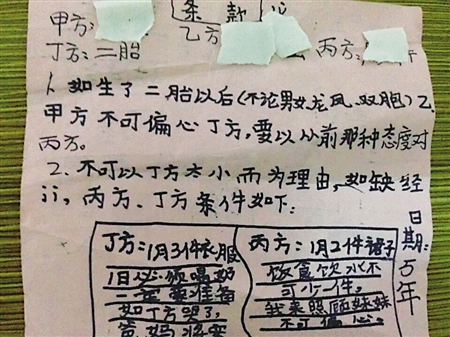 条款
甲方:
丁方:二胎
乙方
丙方:
1、如生了二胎以后(不论男女龙凤、双胞)乙、
甲方不可偏心丁方,要以从前那种态度对
丙方。
2、不可以丁方太小而为理由,如缺经
济,丙方、丁方条件如下:
丁方:1月3件衣服
1日必须喝奶
一定要准备
如丁方哭了,
爸妈将要
丙方:1月2件裙子
饭食饮水不
可少一件。
我来照顾妹妹
不可偏心。
日期:5年